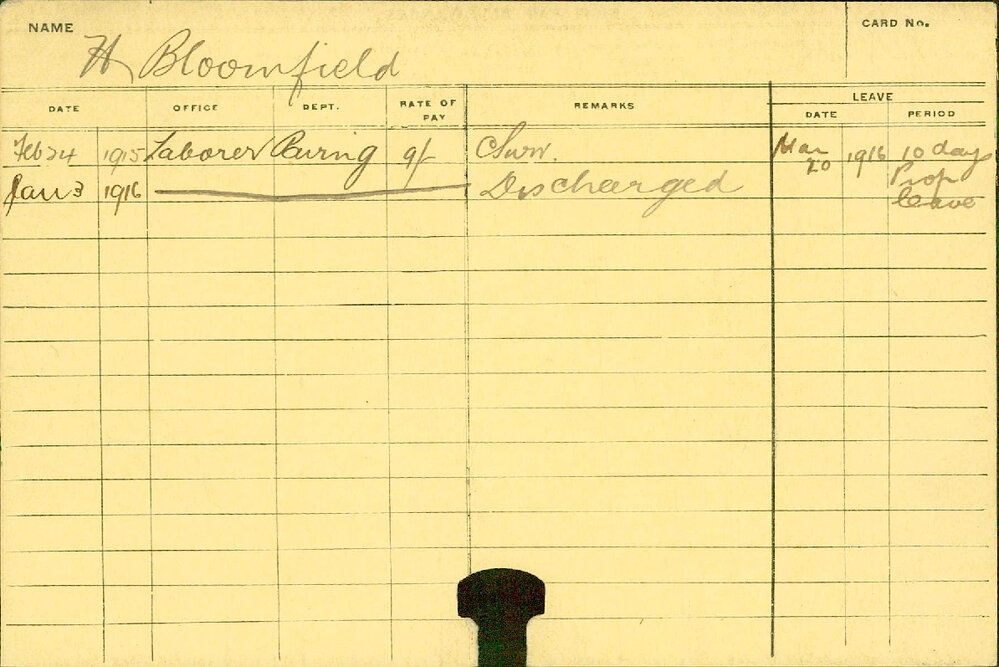 NAME CARD No.
H Bloomfield
DATE OFFICE DEPT. RATE OF PAY REMARKS LEAVE
DATE PERIOD
Feb 24 1915 Laborer Paving 9/- Mar 20 1916 10 days
Prop
leave
Jan 3 1916 Discharged